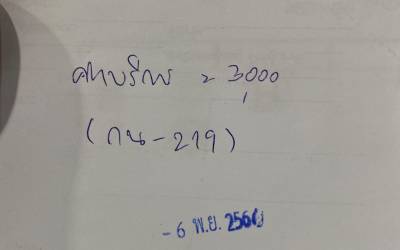 ค่าบริการ = 3,000
(กน-219)
- 6 พ.ย. 2560